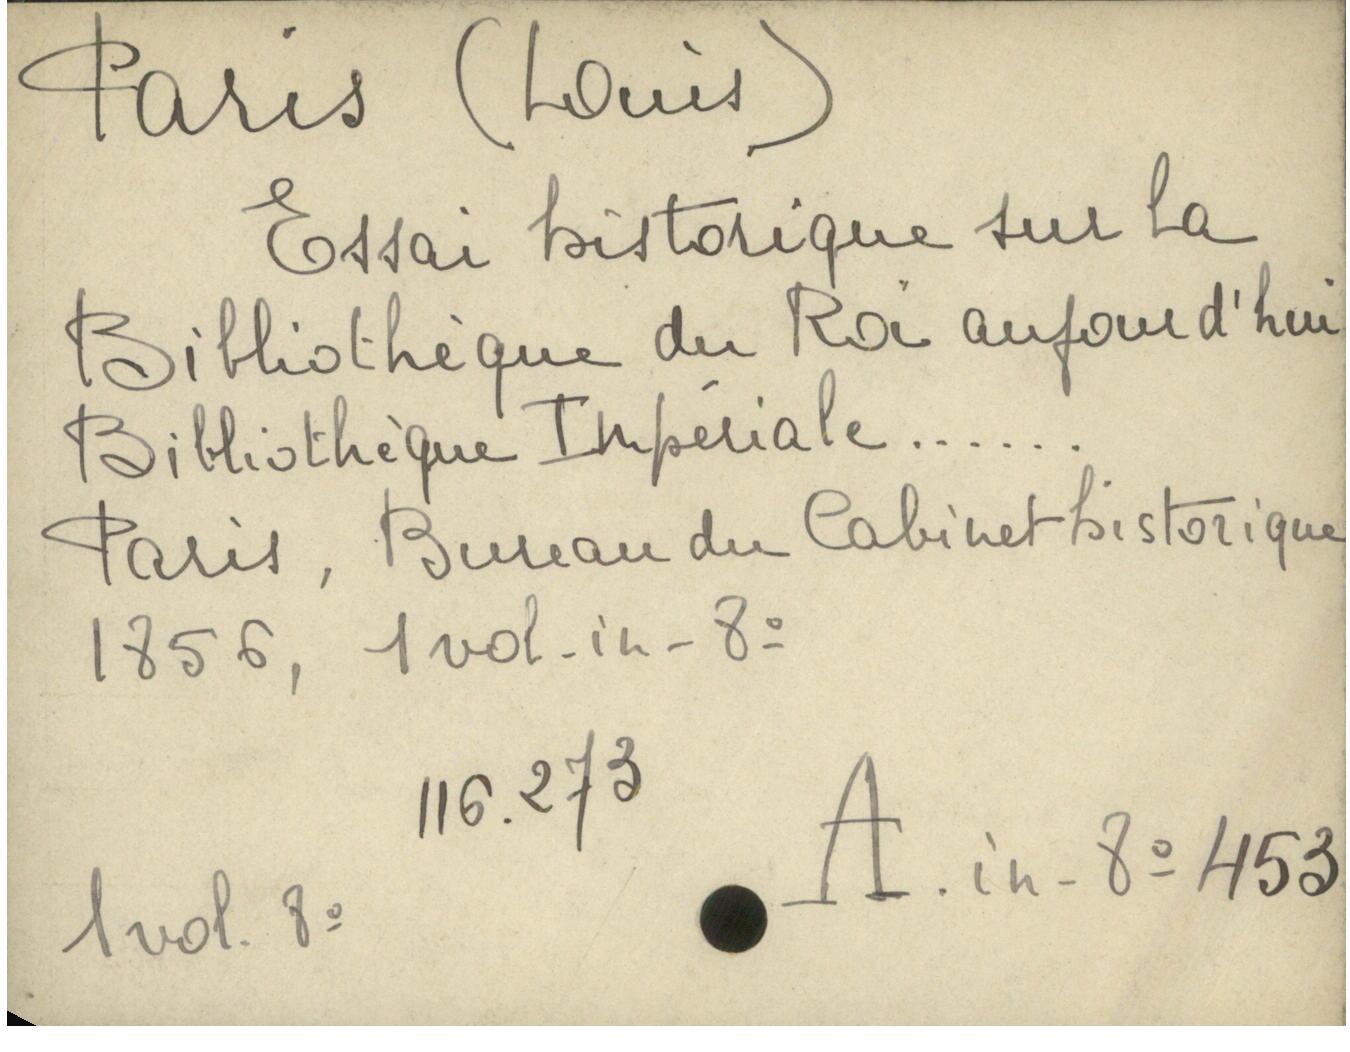 Paris (Louis)
Essai historique sur la
Bibliothèque du Roi aujourd'hui
Bibliothèque Impériale.......
Paris, Bureau du Cabinet historique
1856, 1 vol. in-8º
116.273
A. in-8º 453
1 vol. 8º